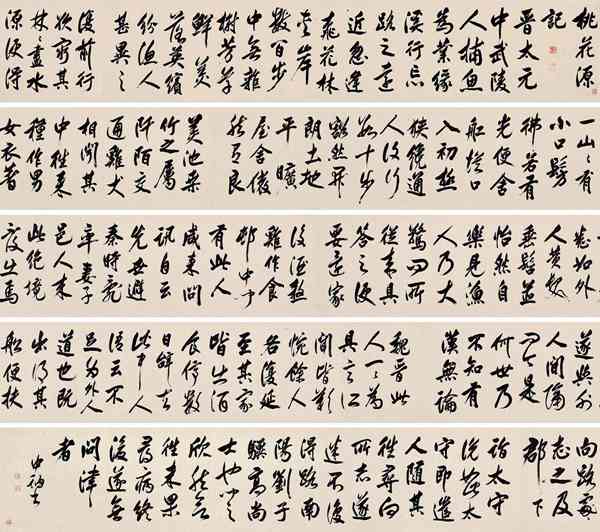 桃花源
記
晉太元
中武陵
人捕魚
為業緣
溪行忘
路之遠
近忽逢
桃花林
夾岸
數百步
中無雜
樹芳草
鮮美
落英繽
紛漁人
甚異之
復前行
欲窮其
林林盡水
源便得
一山山有
小口髣
彿若有
光便舍
船從口
入初極
狹纔通
人復行
數十步
豁然開
朗土地
平曠
屋舍儼
然有良
美池桑
竹之屬
阡陌交
通雞犬
相聞其
中往來
種作男
女衣著
悉如外
人黃髮
垂髫並
怡然自
樂見漁
人乃大
驚問所
從來具
答之便
要還家
設酒殺
雞作食
邨中聞
有此人
咸來問
訊自云
先世避
秦時亂
率妻子
邑人來
此絕境
復出焉
遂與外
人間隔
問今是
何世乃
不知有
漢無論
魏晉此
人一一為
具言所
聞皆歎
惋餘人
各復延
至其家
皆出酒
食停數
日辭去
此中人
語云不
足為外人
道也既
出得其
船便扶
向路處處
志之及
郡下
詣太守
說此太
守即遣
人隨其
往尋向
所志遂
迷不復
得路南
陽劉子
驥高尚
士也聞之
欣然
往未果
尋病終
後遂無
問津
者